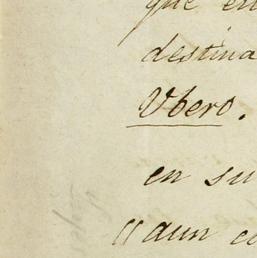 que en
destina
Ubero.
en su
"aun e